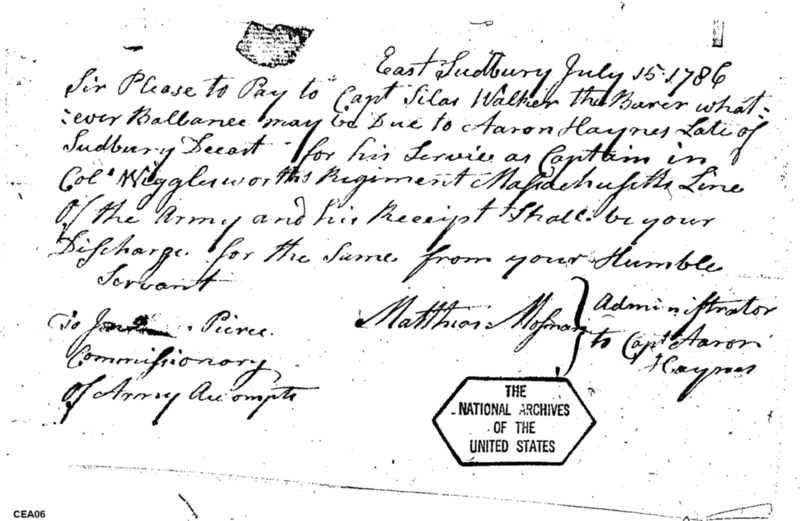 East Sudbury July 15 1786
Sir Please to Pay to Capt Silas Walker the Barer what=
=ever Ballance may be Due to Aaron Haynes Late of
Sudbury Decast for his Service as Captain in
Col° Wigglesworths Regiment Massachusetts Line
Of the Army and his Receipt Shall be your
Discharge for the Same from your Humble
Servant
Matthias Mosman } Administrator
to Capt Aaron
Haynes
To Pierce
Commissionary
Of Army Accompts
THE
NATIONAL ARCHIVES
OF THE
UNITED STATES
CEA06